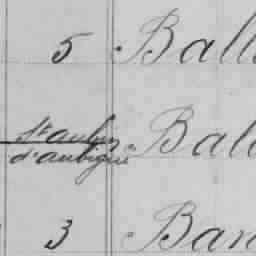 5 Ball
St aubin
d'aubigné Bal
3 Ban